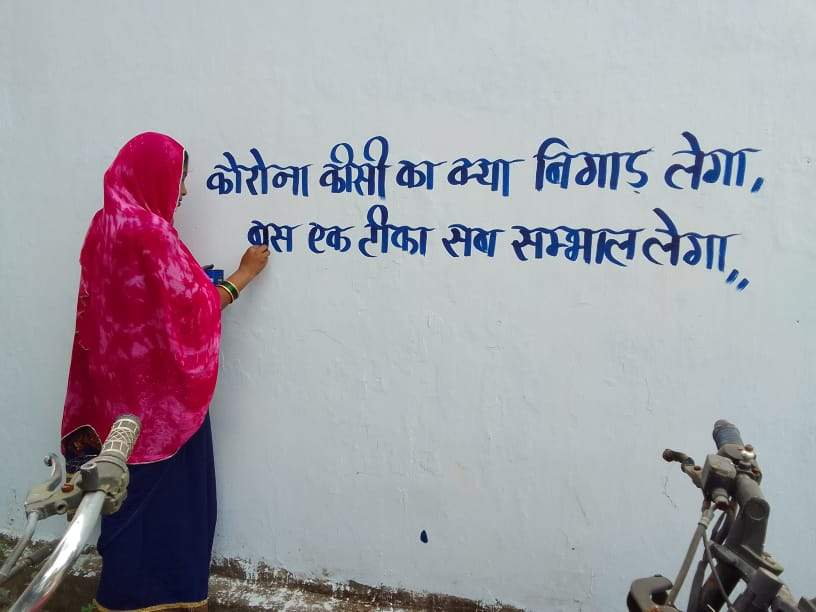 कोरोना कीसी का क्या बिगाड़ लेगा,
बास एक टीका सब सम्भाल लेगा,,